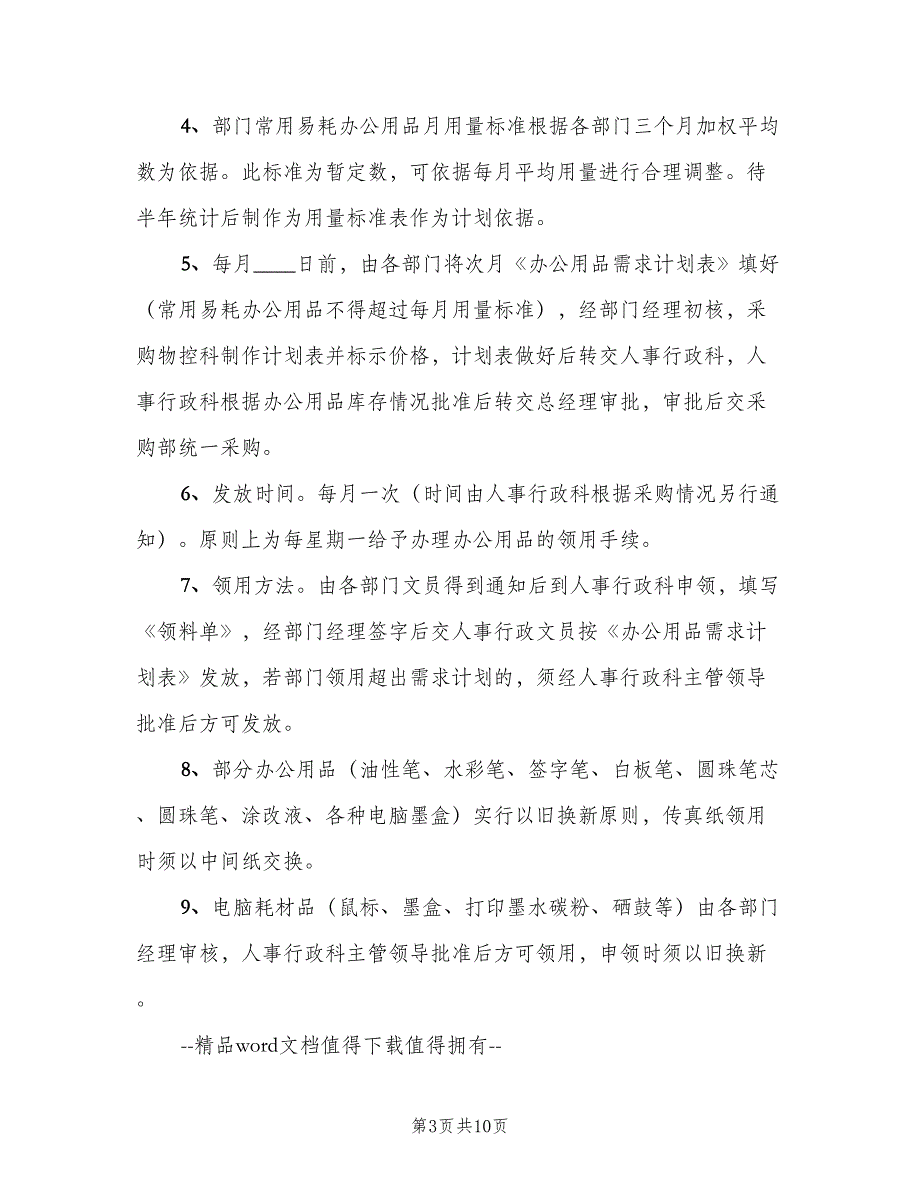 4、部门常用易耗办公用品月用量标准根据各部门三个月加权平均
数为依据。此标准为暂定数，可依据每月平均用量进行合理调整。待
半年统计后制作为用量标准表作为计划依据。
5、每月____日前，由各部门将次月《办公用品需求计划表》填好
（常用易耗办公用品不得超过每月用量标准），经部门经理初核，采
购物控科制作计划表并标示价格，计划表做好后转交人事行政科，人
事行政科根据办公用品库存情况批准后转交总经理审批，审批后交采
购部统一采购。
6、发放时间。每月一次（时间由人事行政科根据采购情况另行通
知）。原则上为每星期一给予办理办公用品的领用手续。
7、领用方法。由各部门文员得到通知后到人事行政科申领，填写
《领料单》，经部门经理签字后交人事行政文员按《办公用品需求计
划表》发放，若部门领用超出需求计划的，须经人事行政科主管领导
批准后方可发放。
8、部分办公用品（油性笔、水彩笔、签字笔、白板笔、圆珠笔芯
、圆珠笔、涂改液、各种电脑墨盒）实行以旧换新原则，传真纸领用
时须以中间纸交换。
9、电脑耗材品（鼠标、墨盒、打印墨水碳粉、硒鼓等）由各部门
经理审核，人事行政科主管领导批准后方可领用，申领时须以旧换新
。
--精品word文档值得下载值得拥有--
第3页共10页